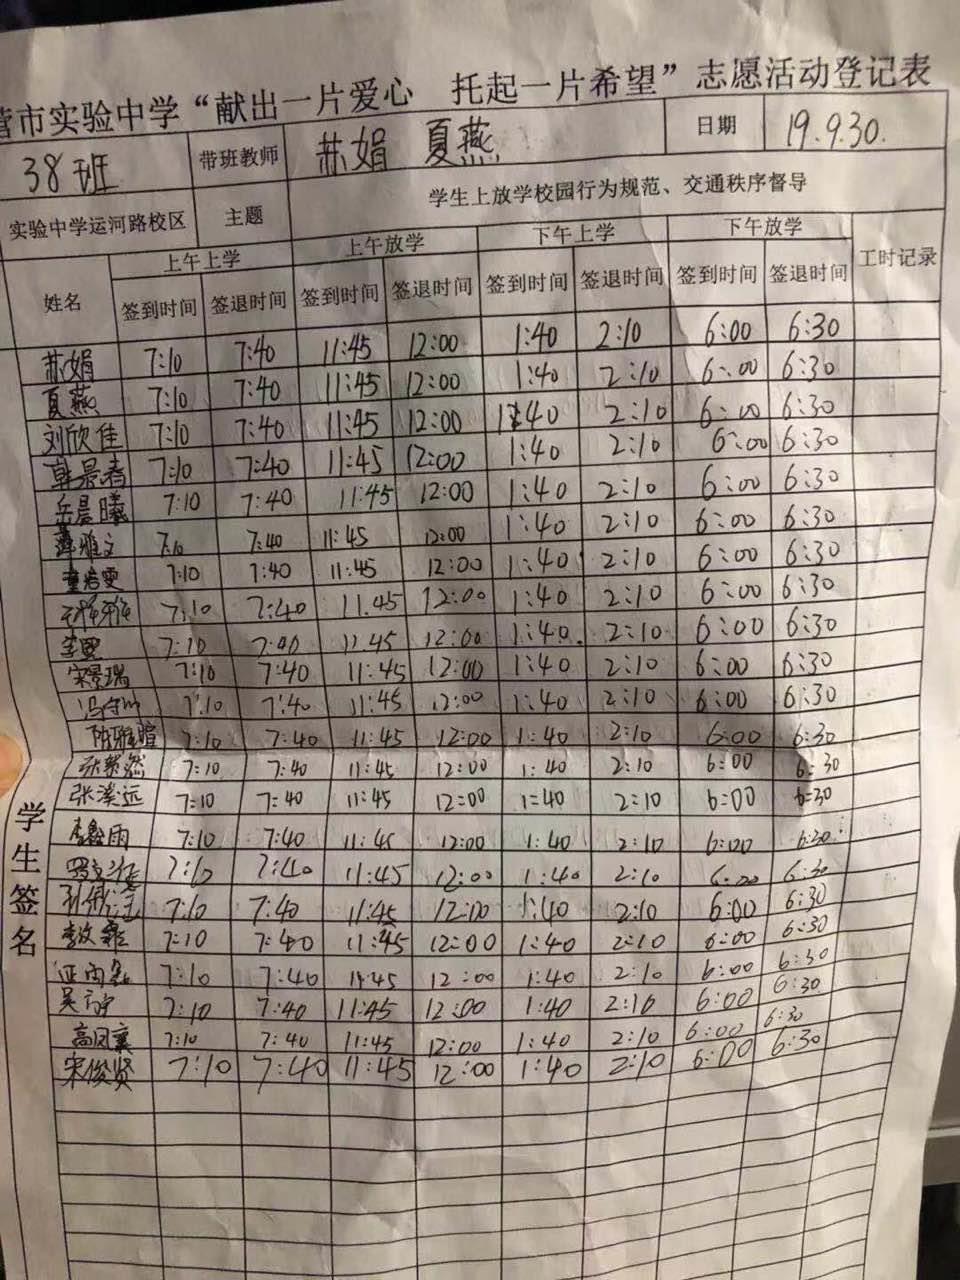 营市实验中学“献出一片爱心 托起一片希望”志愿活动登记表
38班 带班教师 苏娟 夏燕 日期 19.9.30.
实验中学运河路校区 主题 学生上放学校园行为规范、交通秩序督导
上午上学 上午放学 下午上学 下午放学 工时记录
姓名 签到时间 签退时间 签到时间 签退时间 签到时间 签退时间 签到时间 签退时间
学生签名
苏娟 7:10 7:40 11:45 12:00 1:40 2:10 6:00 6:30
夏燕 7:10 7:40 11:45 12:00 1:40 2:10 6:00 6:30
刘欣佳 7:10 7:40 11:45 12:00 1:40 2:10 6:00 6:30
韩景春 7:10 7:40 11:45 12:00 1:40 2:10 6:00 6:30
岳晨曦 7:10 7:40 11:45 12:00 1:40 2:10 6:00 6:30
雅文 7:10 7:40 11:45 12:00 1:40 2:10 6:00 6:30
7:10 7:40 11:45 12:00 1:40 2:10 6:00 6:30
7:10 7:40 11.45 12:00 1:40 2:10 6:00 6:30
7:10 7:40 11.45 12:00 1:40. 2:10 6:00 6:30
宋景瑞 7:10 7:40 11:45 12:00 1:40 2:10 6:00 6:30
7:10 7:40 11:45 12:00 1:40 2:10 6:00 6:30
陈雅瑄 7:10 7:40 11:45 12:00 1:40 2:10 6:00 6:30
7:10 7:40 11:45 12:00 1:40 2:10 6:00 6:30
张溪远 7:10 7:40 11:45 12:00 1:40 2:10 6:00 6:30
李鑫雨 7:10 7:40 11:45 12:00 1:40 2:10 6:00 6:30
7:10 7:40 11:45 12:00 1:40 2:10 6:00 6:30
7:10 7:40 11:45 12:00 1:40 2:10 6:00 6:30
7:10 7:40 11:45 12:00 1:40 2:10 6:00 6:30
7:10 7:40 11:45 12:00 1:40 2:10 6:00 6:30
7:10 7:40 11:45 12:00 1:40 2:10 6:00 6:30
高凤襄 7:10 7:40 11:45 12:00 1:40 2:10 6:00 6:30
宋俊贤 7:10 7:40 11:45 12:00 1:40 2:10 6:00 6:30